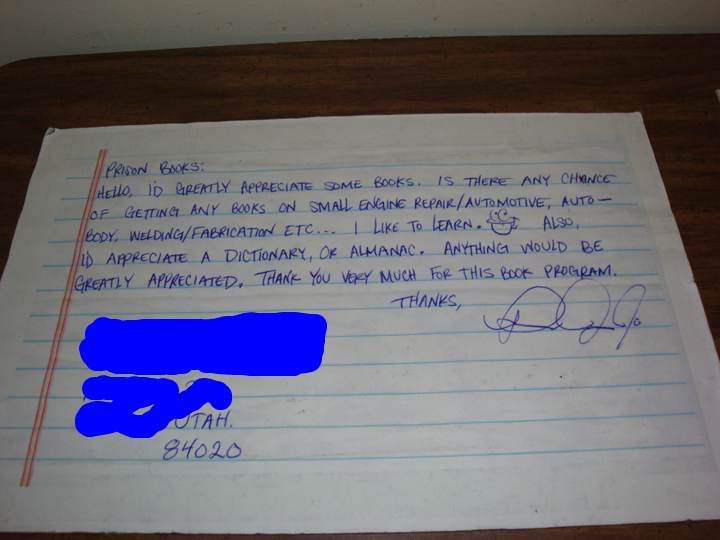 PRISON BOOKS:
HELLO, I'D GREATLY APPRECIATE SOME BOOKS. IS THERE ANY CHANCE
OF GETTING ANY BOOKS ON SMALL ENGINE REPAIR/AUTOMOTIVE, AUTO-
BODY, WELDING/FABRICATION ETC... I LIKE TO LEARN. ALSO,
I'D APPRECIATE A DICTIONARY, OR ALMANAC. ANYTHING WOULD BE
GREATLY APPRECIATED. THANK YOU VERY MUCH FOR THIS BOOK PROGRAM.
THANKS,
UTAH.
84020